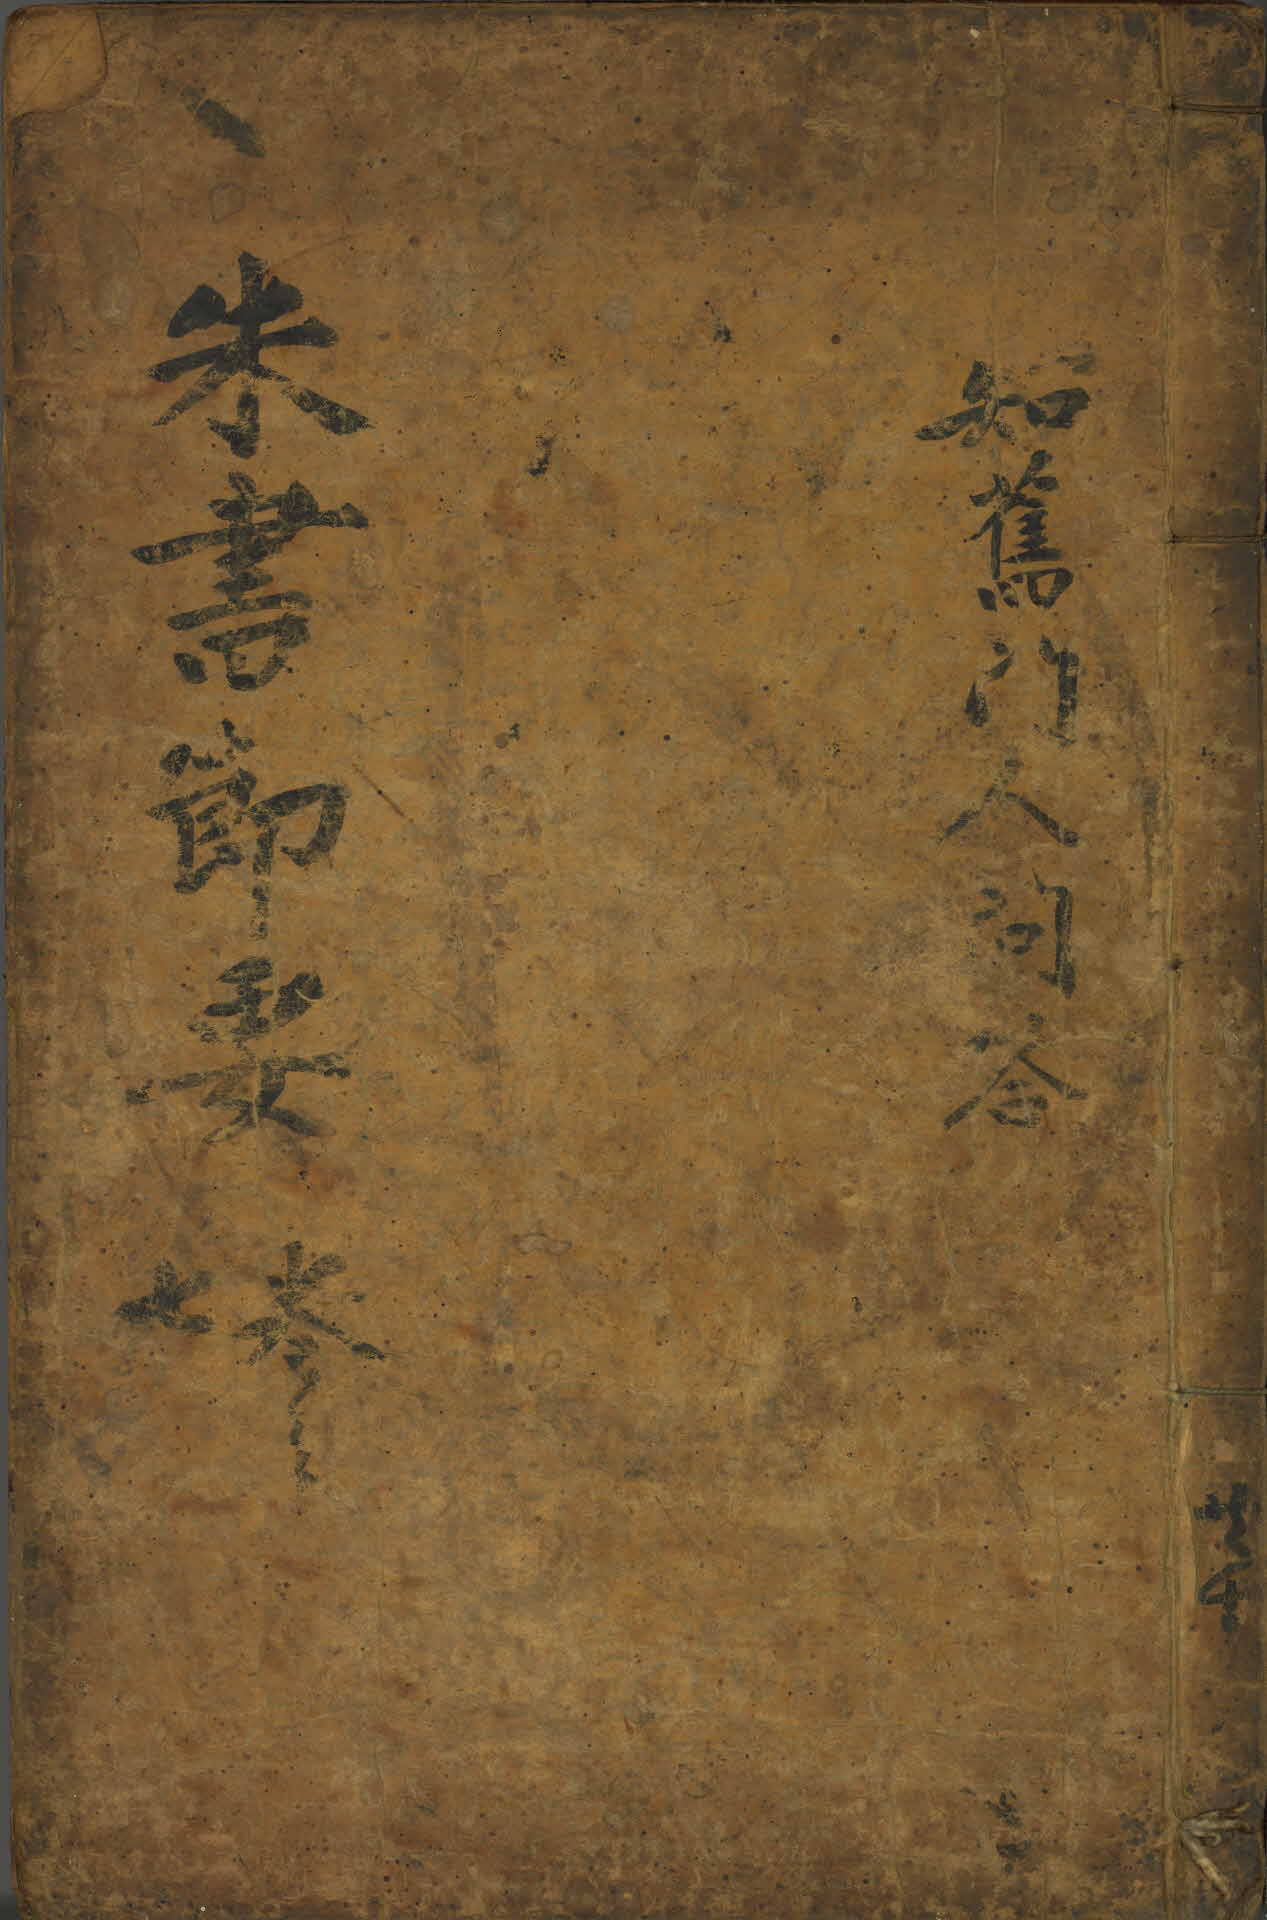 知舊門人問答
朱書節要
七